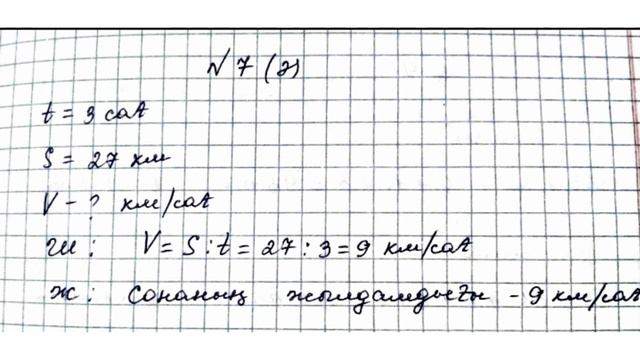 № 7 (2)
t = 3 сағ
S = 27 км
V - ? км/сағ
ш: V = S : t = 27 : 3 = 9 км/сағ
ж: Сонаның жылдамдығы - 9 км/сағ